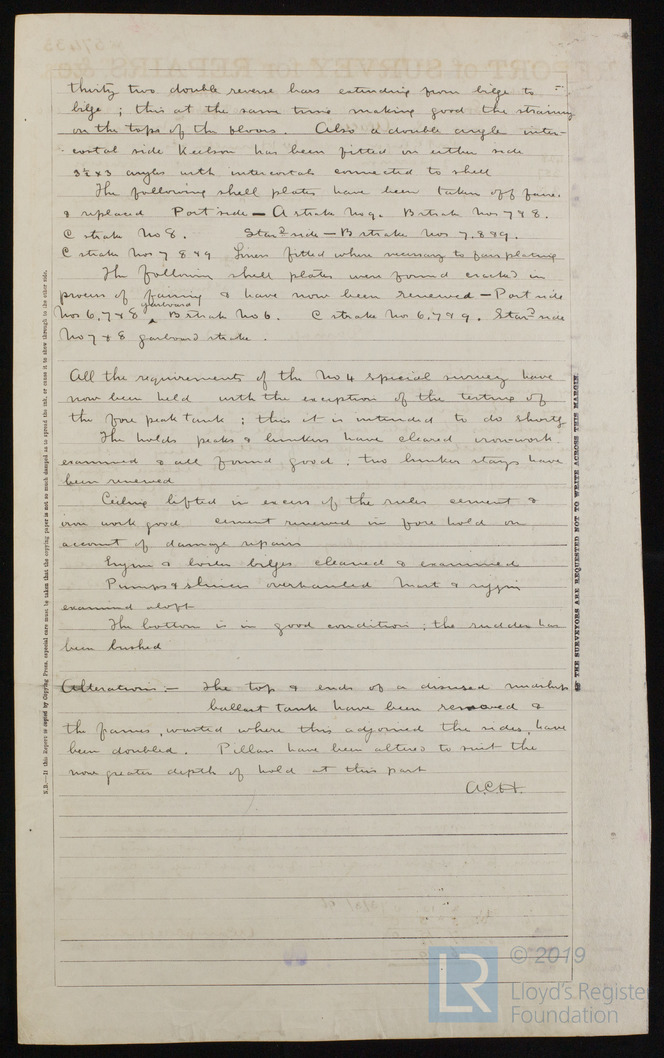 thirty two double reverse bars extending from bilge to
bilge ; this at the same time making good the straining
on the tops of the floors . Also a double angle inter-
costal side Keelson has been fitted on either side
3½ x 3 angles with intercostals connected to shell
The following shell plates have been taken off faired
& replaced Port side — A strake No 9. B strake Nos 7 & 8.
C strake No 8. Starᵈ side — B strake Nos 7, 8 & 9.
C strake Nos 7 8 & 9 Liners fitted where necessary to fair plating
The following shell plates were found cracked in
process of fairing & have now been renewed — Port side
Nos 6, 7 & 8 garboard B strake No 6. C strake Nos 6, 7 & 9. Starᵈ side
No 7 & 8 garboard strake .
All the requirements of the No 4 special survey have
now been held with the exception of the testing of
the fore peak tank ; this it is intended to do shortly
The holds peaks & bunkers have cleared ironwork
examined & all found good . two bunker stays have
been renewed
Ceiling lifted in excess of the rules cement &
iron work good cement renewed in fore hold on
account of damage repairs
Engine & boiler bilges cleaned & examined
Pumps & sluices overhauled Mast & rigging
examined aloft
The bottom is in good condition ; the rudder has
been bushed
Alterations :— The top & ends of a disused midship
ballast tank have been removed &
the frames, wasted where this adjoined the sides, have
been doubled . Pillars have been altered to suit the
now greater depth of hold at this part
A.C.H.
N.B.—If this Report is copied by Copying Press, especial care must be taken that the copying paper is not so much damped as to spread the ink, or cause it to show through to the other side.
THE SURVEYORS ARE REQUESTED NOT TO WRITE ACROSS THIS MARGIN.
LR
© 2019
Lloyd's Register
Foundation